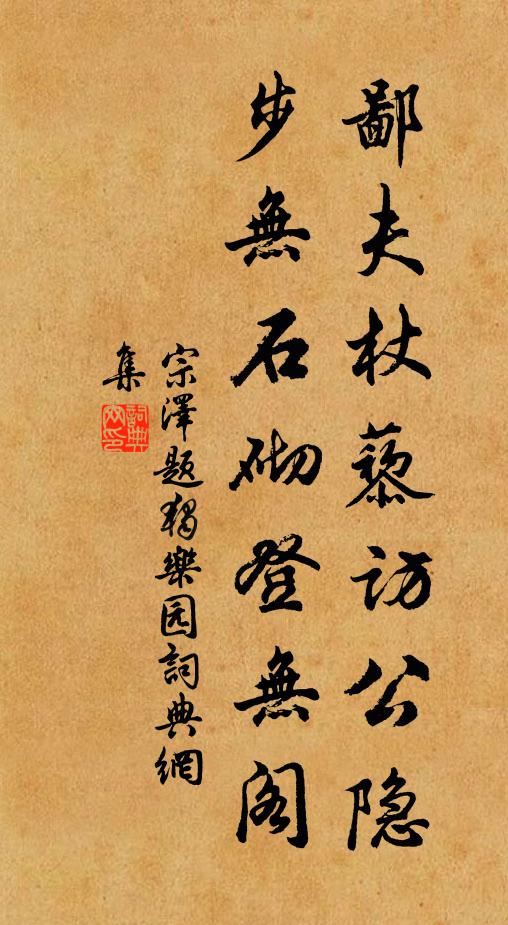 鄙夫杖藜访公隐
步無石砌登無阁
宗澤题独樂园詞典網
集
詞典
网印